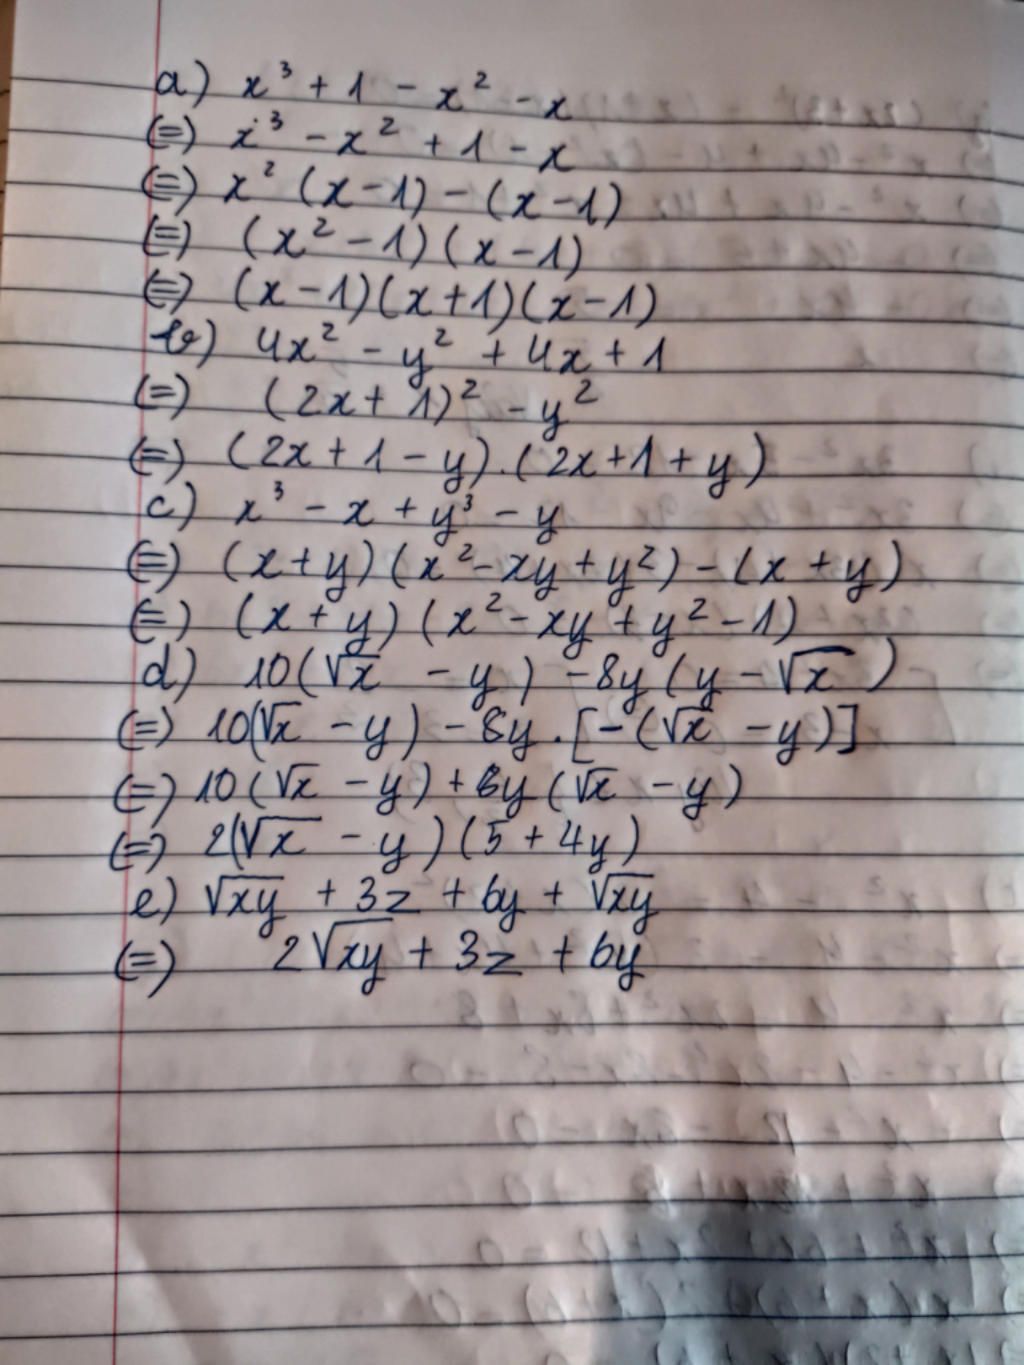 a) x³ + 1 - x² - x
(=) x³ - x² + 1 - x
(=) x² (x - 1) - (x - 1)
(=) (x² - 1) (x - 1)
(=) (x - 1)(x + 1)(x - 1)
b) 4x² - y² + 4x + 1
(=) (2x + 1)² - y²
(=) (2x + 1 - y).(2x + 1 + y)
c) x³ - x + y³ - y
(=) (x + y)(x² - xy + y²) - (x + y)
(=) (x + y) (x² - xy + y² - 1)
d) 10(√x - y) - 8y (y - √x)
(=) 10(√x - y) - 8y . [-(√x - y)]
(=) 10(√x - y) + 8y (√x - y)
(=) 2(√x - y)(5 + 4y)
e) √xy + 3z + 6y + √xy
(=) 2√xy + 3z + 6y